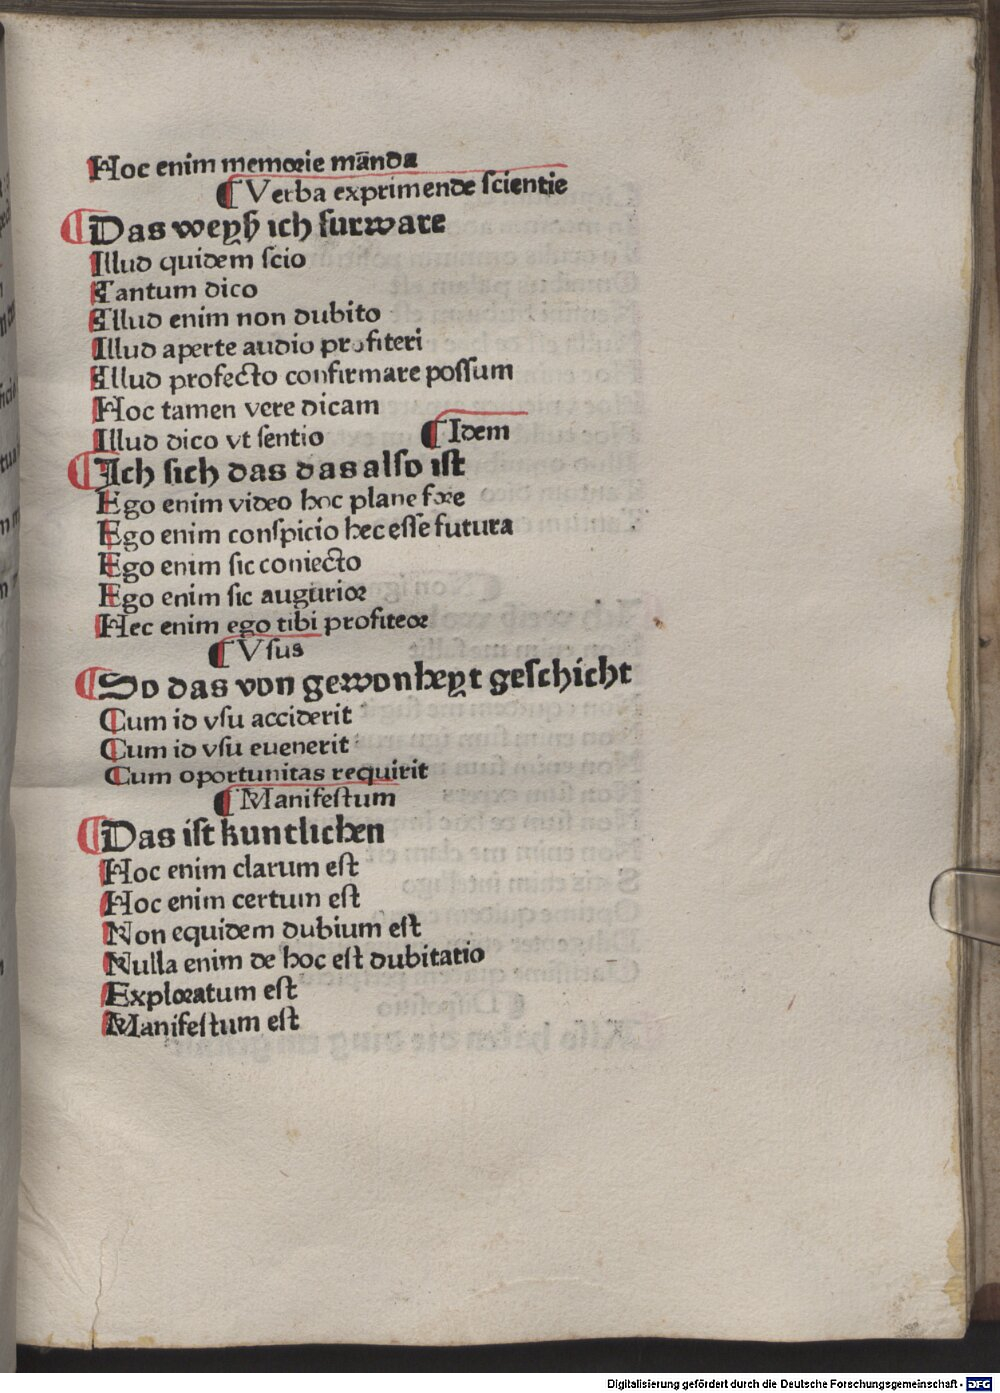 Hoc enim memorie mãnda
¶ Verba exprimende scientie
¶ Das weyß ich furware
Illud quidem scio
Tantum dico
Illud enim non dubito
Illud aperte audio profiteri
Illud profecto confirmare possum
Hoc tamen vere dicam
Illud dico vt sentio ¶ Idem
¶ Ich sich das das also ist
Ego enim video hoc plane fore
Ego enim conspicio hec esse futura
Ego enim sic coniecto
Ego enim sic augurior
Hec enim ego tibi profiteor
¶ Vsus
¶ So das von gewonheyt geschicht
Cum id vsu acciderit
Cum id vsu euenerit
Cum oportunitas requirit
¶ Manifestum
¶ Das ist kuntlichen
Hoc enim clarum est
Hoc enim certum est
Non equidem dubium est
Nulla enim de hoc est dubitatio
Exploratum est
Manifestum est
Digitalisierung gefördert durch die Deutsche Forschungsgemeinschaft - DFG